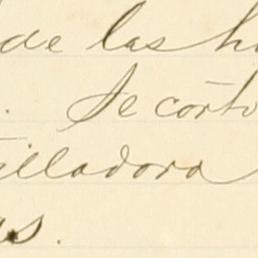 de las h
. Se corto
illadora
as.